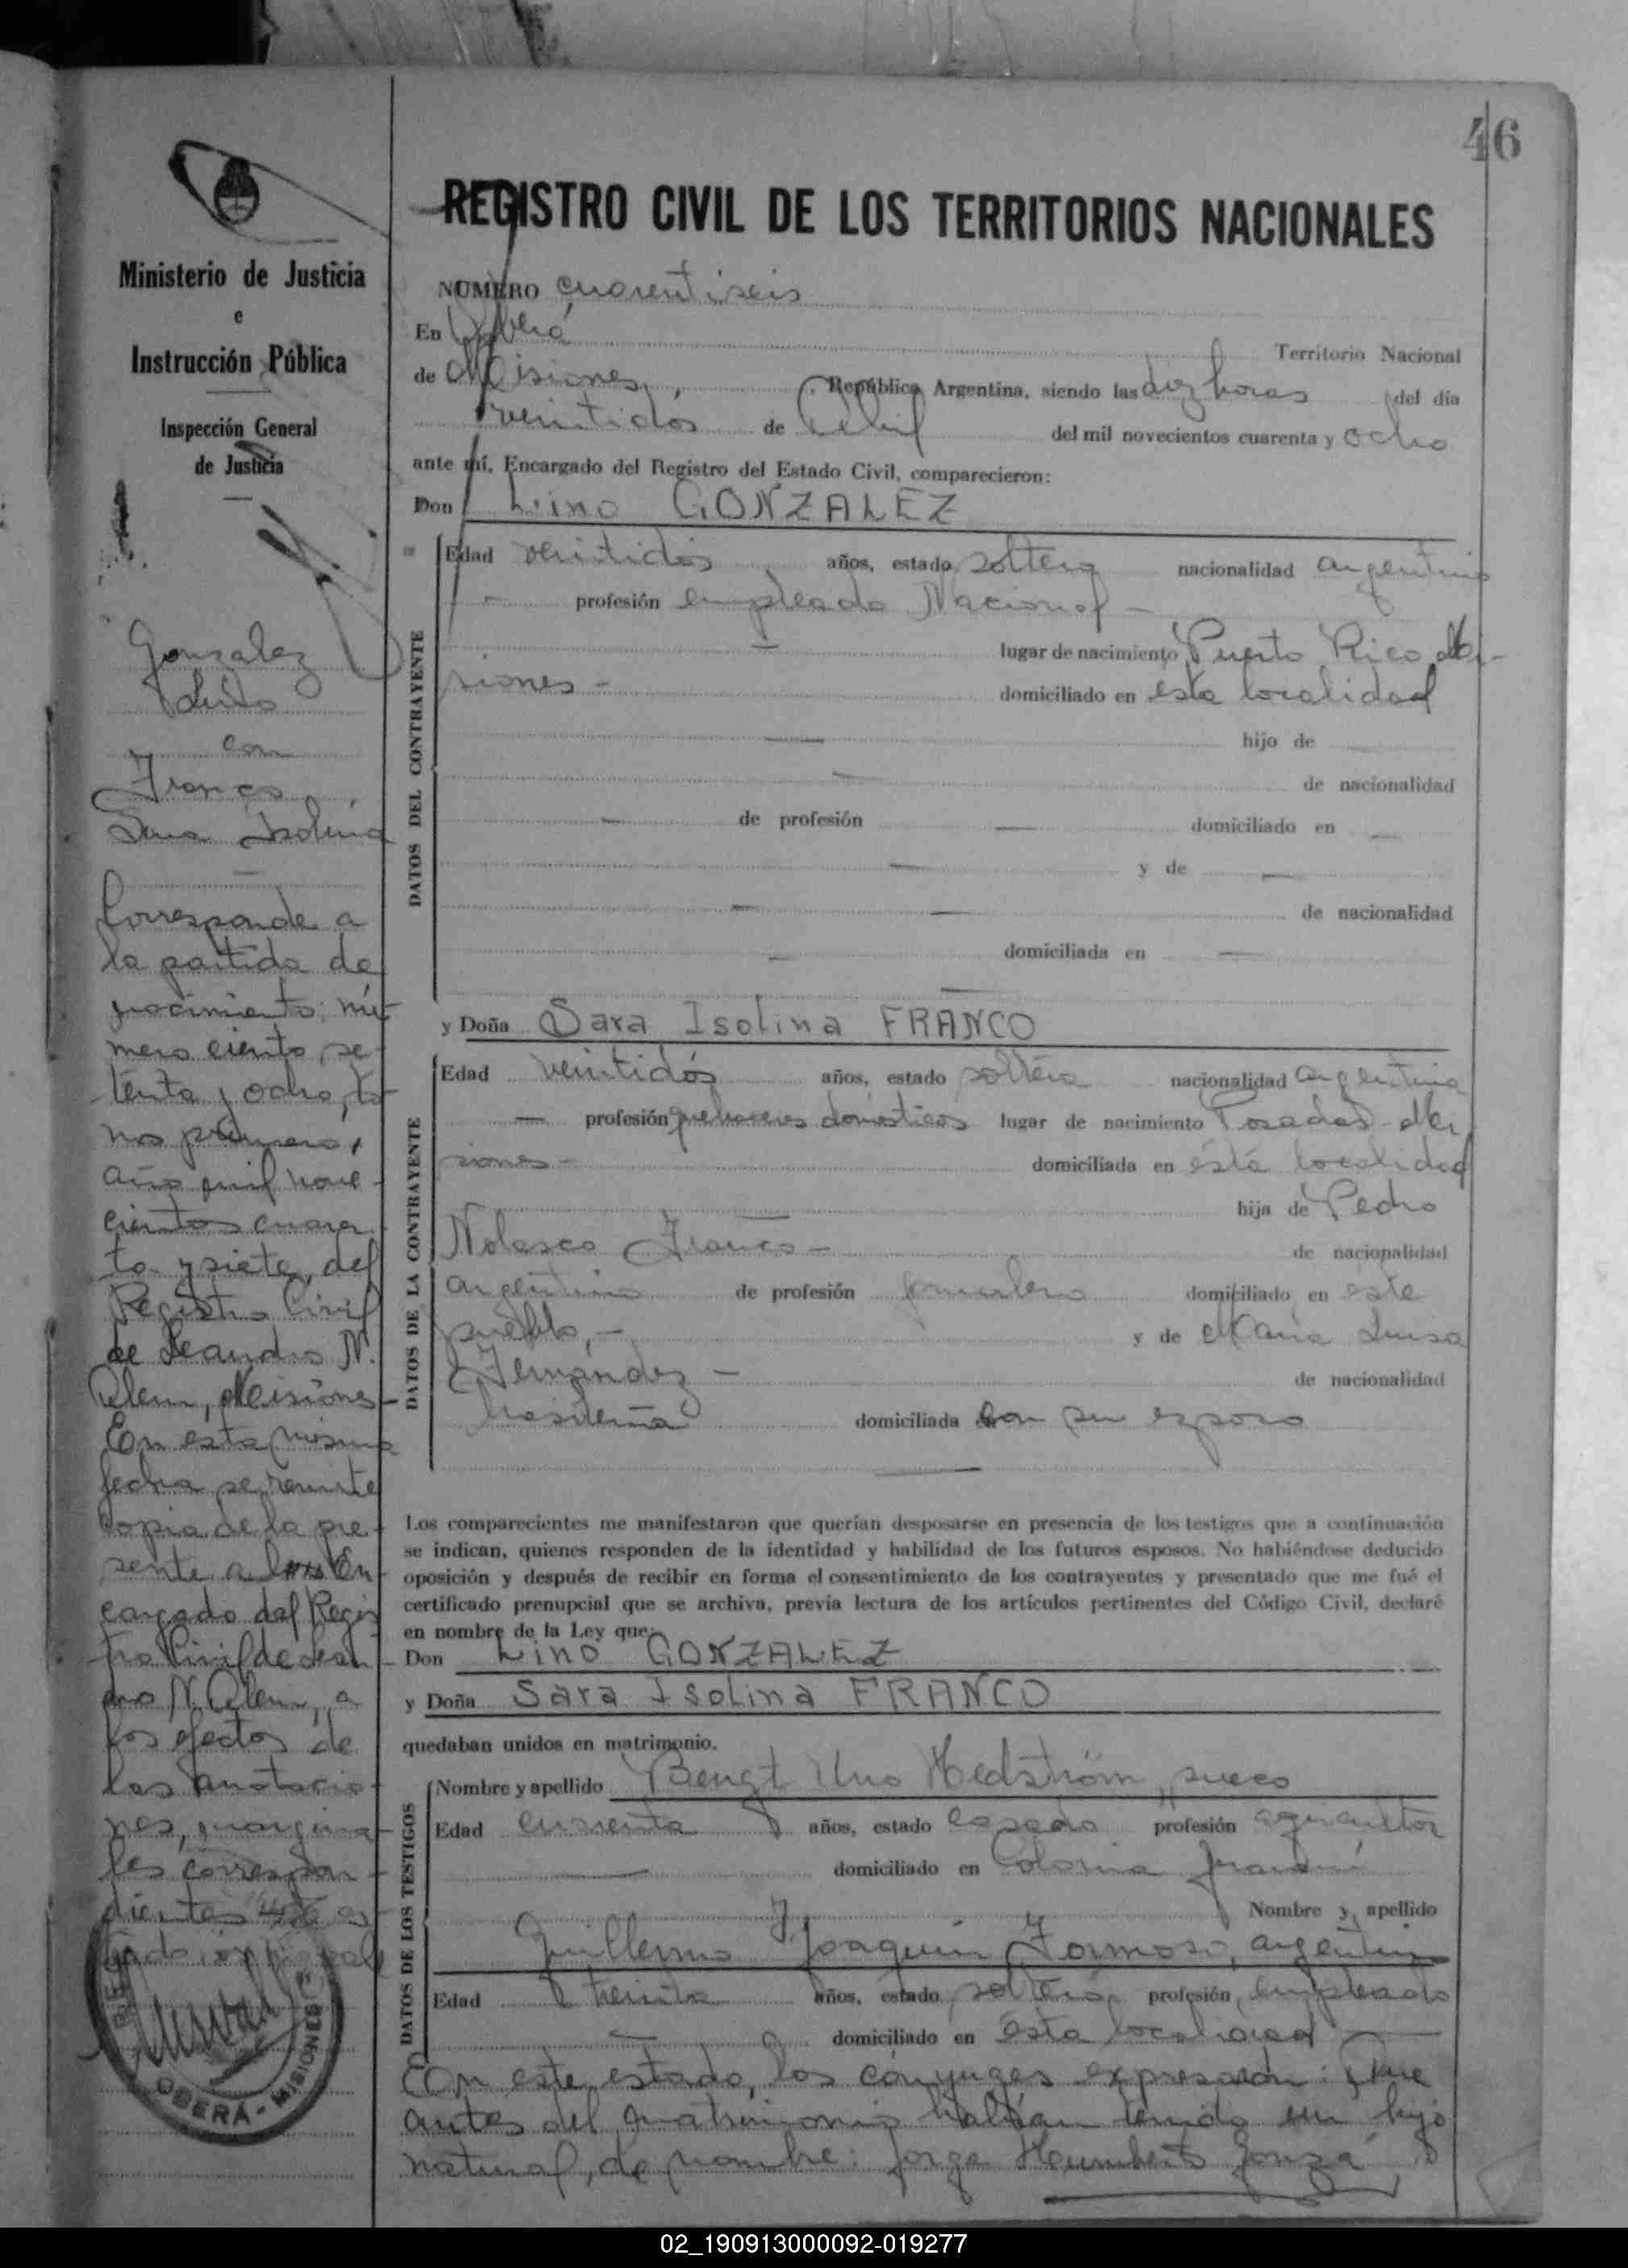 46
REGISTRO CIVIL DE LOS TERRITORIOS NACIONALES
Ministerio de Justicia
e
Instrucción Pública
Inspección General
de Justicia
Gonzalez
Lino
con
Franco
Sara Isolina
Corresponde a
la partida de
nacimiento nú-
mero ciento se-
tenta y ocho, to-
mo primero,
año mil nove-
cientos cuaren-
ta y siete, del
Registro Civil
de Leandro N.
Alem, Misiones-
En esta misma
fecha se remite
copia de la pre-
sente al En-
cargado del Regis
tro Civil de Lean-
dro N. Alem, a
los efectos de
las anotacio-
nes, margina-
les correspon-
dientes
OBERÁ - MISIONES
NUMERO cuarentiseis
En Oberá Territorio Nacional
de Misiones, República Argentina, siendo las diez horas del día
veintidós de Abril del mil novecientos cuarenta y ocho
ante mí, Encargado del Registro del Estado Civil, comparecieron:
Don Lino GONZALEZ
DATOS DEL CONTRAYENTE
Edad veintidós años, estado soltero nacionalidad argentino
- profesión empleado Nacional -
- lugar de nacimiento Puerto Rico, Mi-
siones - domiciliado en esta localidad
— hijo de
— de nacionalidad
— de profesión — domiciliado en —
— y de —
— — de nacionalidad
— domiciliada en —
—
y Doña Sara Isolina FRANCO
DATOS DE LA CONTRAYENTE
Edad veintidós años, estado soltera nacionalidad argentina
— profesión quehaceres domésticos lugar de nacimiento Posadas - Mi
siones - domiciliada en ésta localidad
hija de Pedro
Nolasco Franco - de nacionalidad
argentino de profesión jornalero domiciliado en este
pueblo, - y de María Luisa
Fernández - de nacionalidad
brasileña domiciliada con su esposo
—
Los comparecientes me manifestaron que querían desposarse en presencia de los testigos que a continuación
se indican, quienes responden de la identidad y habilidad de los futuros esposos. No habiéndose deducido
oposición y después de recibir en forma el consentimiento de los contrayentes y presentado que me fué el
certificado prenupcial que se archiva, previa lectura de los artículos pertinentes del Código Civil, declaré
en nombre de la Ley que:
Don Lino GONZALEZ
y Doña Sara Isolina FRANCO
quedaban unidos en matrimonio.
DATOS DE LOS TESTIGOS
Nombre y apellido Bengt Uno Hedström, sueco
Edad cuarenta años, estado casado profesión agricultor
— domiciliado en Colonia Guaraní
Nombre y apellido
Guillermo Joaquin Formoso, argentino
Edad treinta años, estado soltero, profesión, empleado
— domiciliado en ésta localidad —
En este estado, los cónyuges expresarón: Que
antes del matrimonio habían tenido un hijo
natural, de nombre: Jorge Humberto Gonzá
02_190913000092-019277